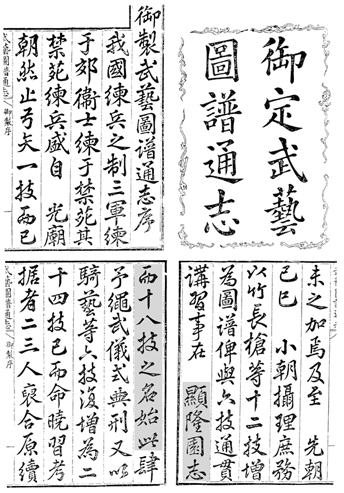 御定武藝
圖譜通志
御製武藝圖譜通志序
我國練兵之制三軍練
于郊衛士練于禁苑其
禁苑練兵盛自 光廟
朝然止弓矢一技而已
藝圖譜通志 御製序
未之加焉及至 先朝
己巳 小朝攝理庶務
以竹長槍等十二技增
為圖譜俾與六技通貫
講習事在 顯隆園志
而十八技之名始此肆
予繩武儀式典刑又以
騎藝等六技復增為二
十四技已而命曉習考
據者二三人裒合原續
藝圖譜通志 御製序